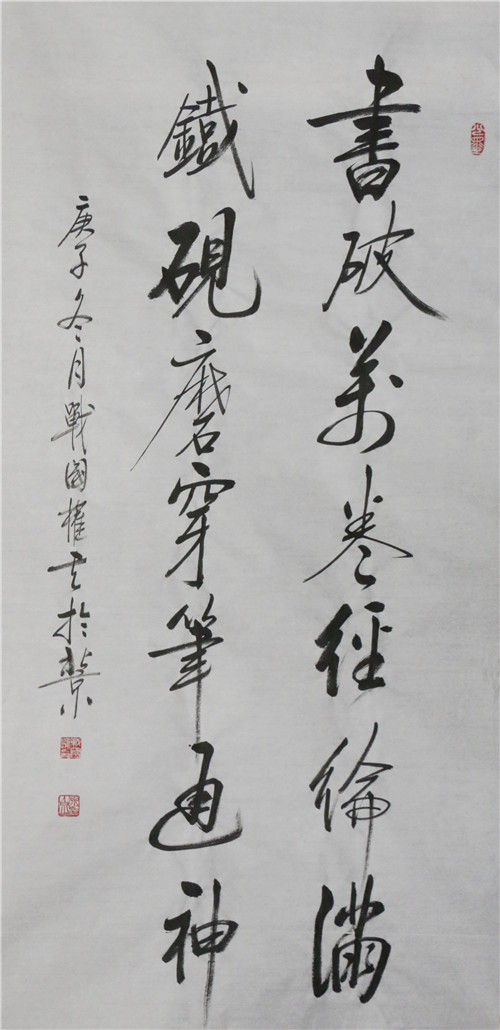 書破萬卷徑綸滿
鐵硯磨穿筆通神
庚子冬月戰國權书於